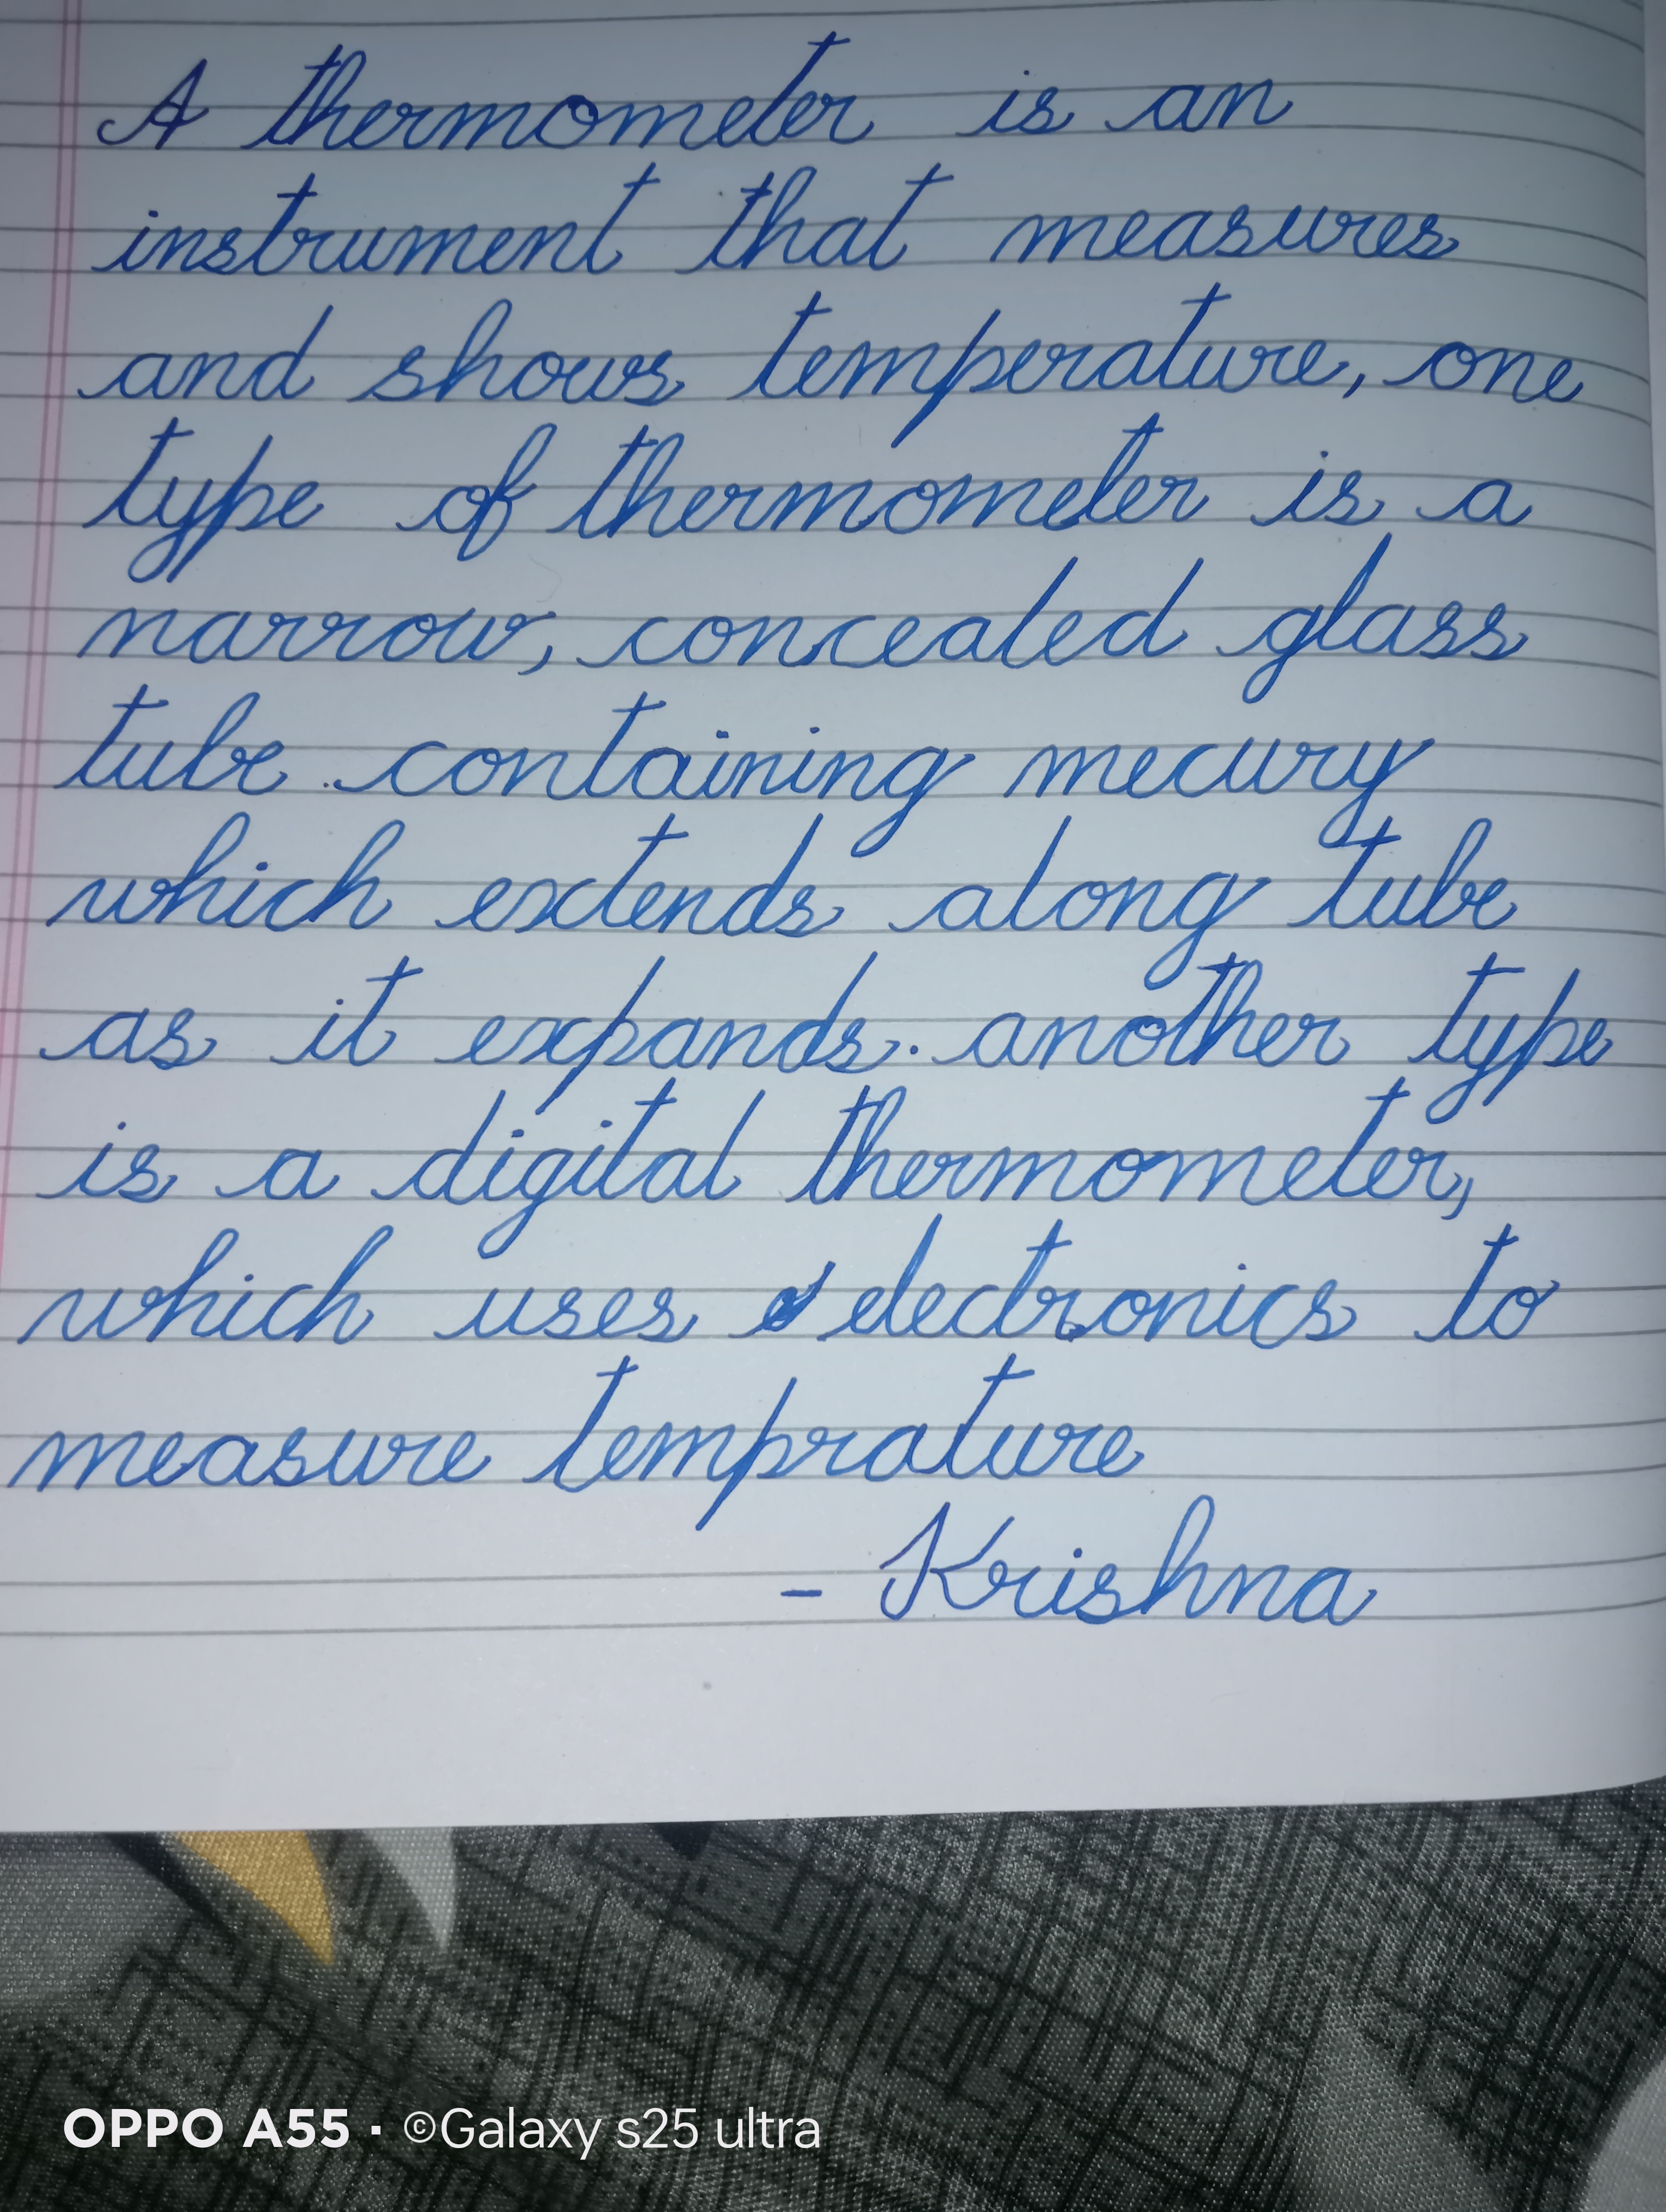 A thermometer is an
instrument that measures
and shows temperature, one
type of thermometer is a
narrow, concealed glass
tube containing mecury
which extends along tube
as it expands. another type
is a digital thermometer,
which uses electronics to
measure temprature
- Krishna
OPPO A55 · ©Galaxy s25 ultra